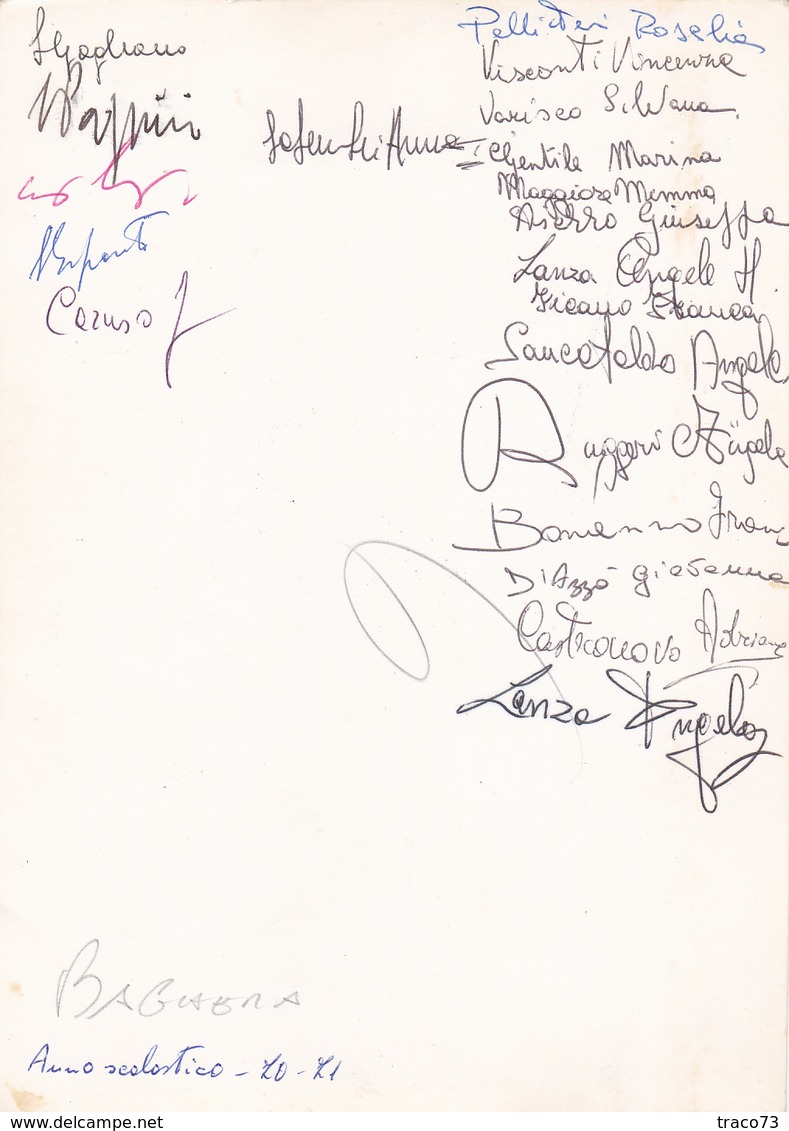 Caruso J
Pellitteri Rosalia
Visconti Vincenza
Varisco Silvana
Gentile Marina
Maggiore Mimma
Aiello Giuseppa
Lanza Angela M.
Ficano Franca
Sancataldo Angela
Ruggeri Angela
Bonanno Fran
D'Azzò Giovanna
Castronovo Adriana
Lanza Angela
BAGHERIA
Anno scolastico - 70 - 71
delcampe.net
traco73